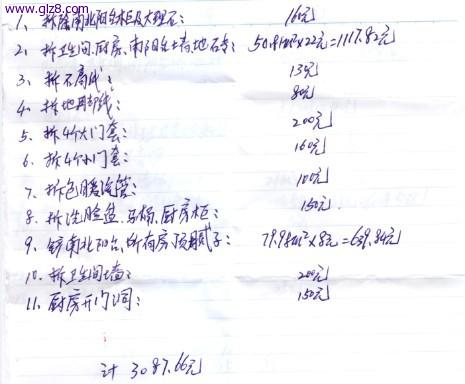 www.glz8.com
1、拆除南北阳台柜及大理石: 160元
2、拆卫生间、厨房、南阳台墙地砖: 50.81m²×22元=1117.82元
3、拆石膏线: 130元
4、拆地脚线: 80元
5、拆4个大门套: 200元
6、拆4个小门套: 160元
7、拆包暖汽管: 100元
8、拆洗脸盆、马桶、厨房柜: 150元.
9、铲南北阳台、所有房顶腻子: 79.98m²×8元=639.84元
10、拆卫生间墙: 200元
11、厨房开门洞: 150元
计 3087.66元